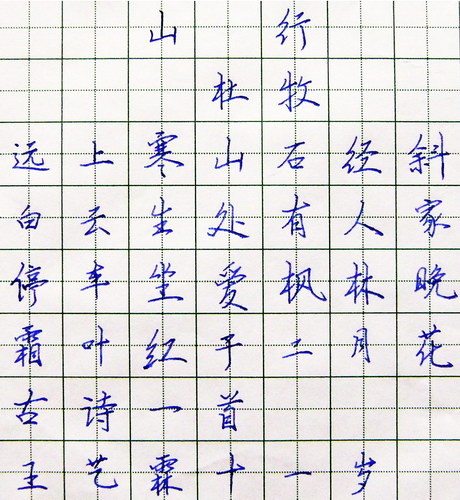 山行
杜牧
远上寒山石经斜
白云生处有人家
停车坐爱枫林晚
霜叶红于二月花
古诗一首
王艺霖十一岁